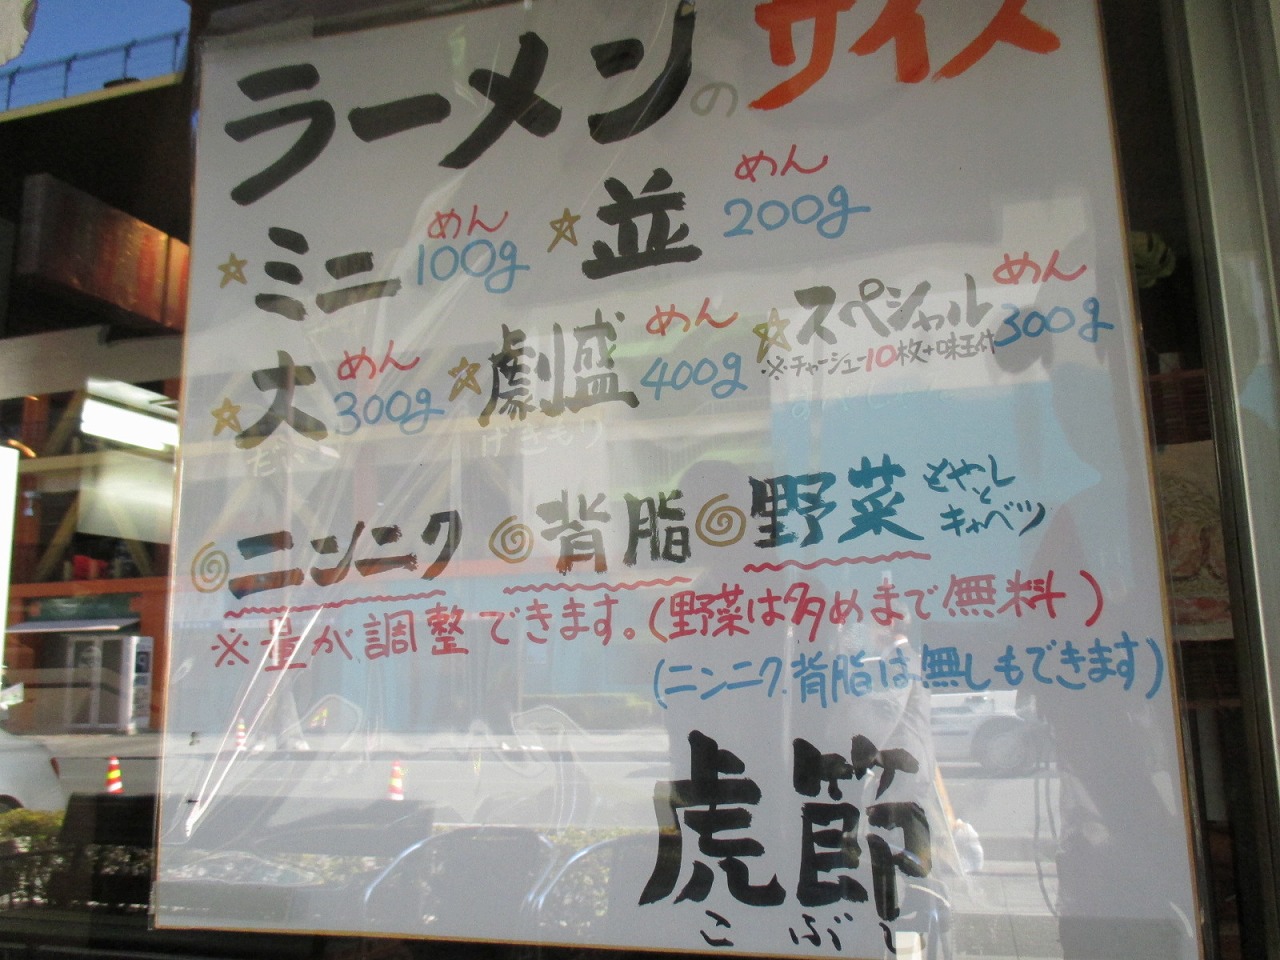 ラーメンのサイズ
☆ミニ めん100g ☆並 めん200g
☆大 めん300g ☆劇盛 めん400g ☆スペシャル めん300g
※チャーシュー10枚+味玉付
げきもり
ニンニク 背脂 野菜 もやしとキャベツ
※量が調整できます。(野菜は多めまで無料)
(ニンニク、背脂は無しもできます)
虎節
こぶし